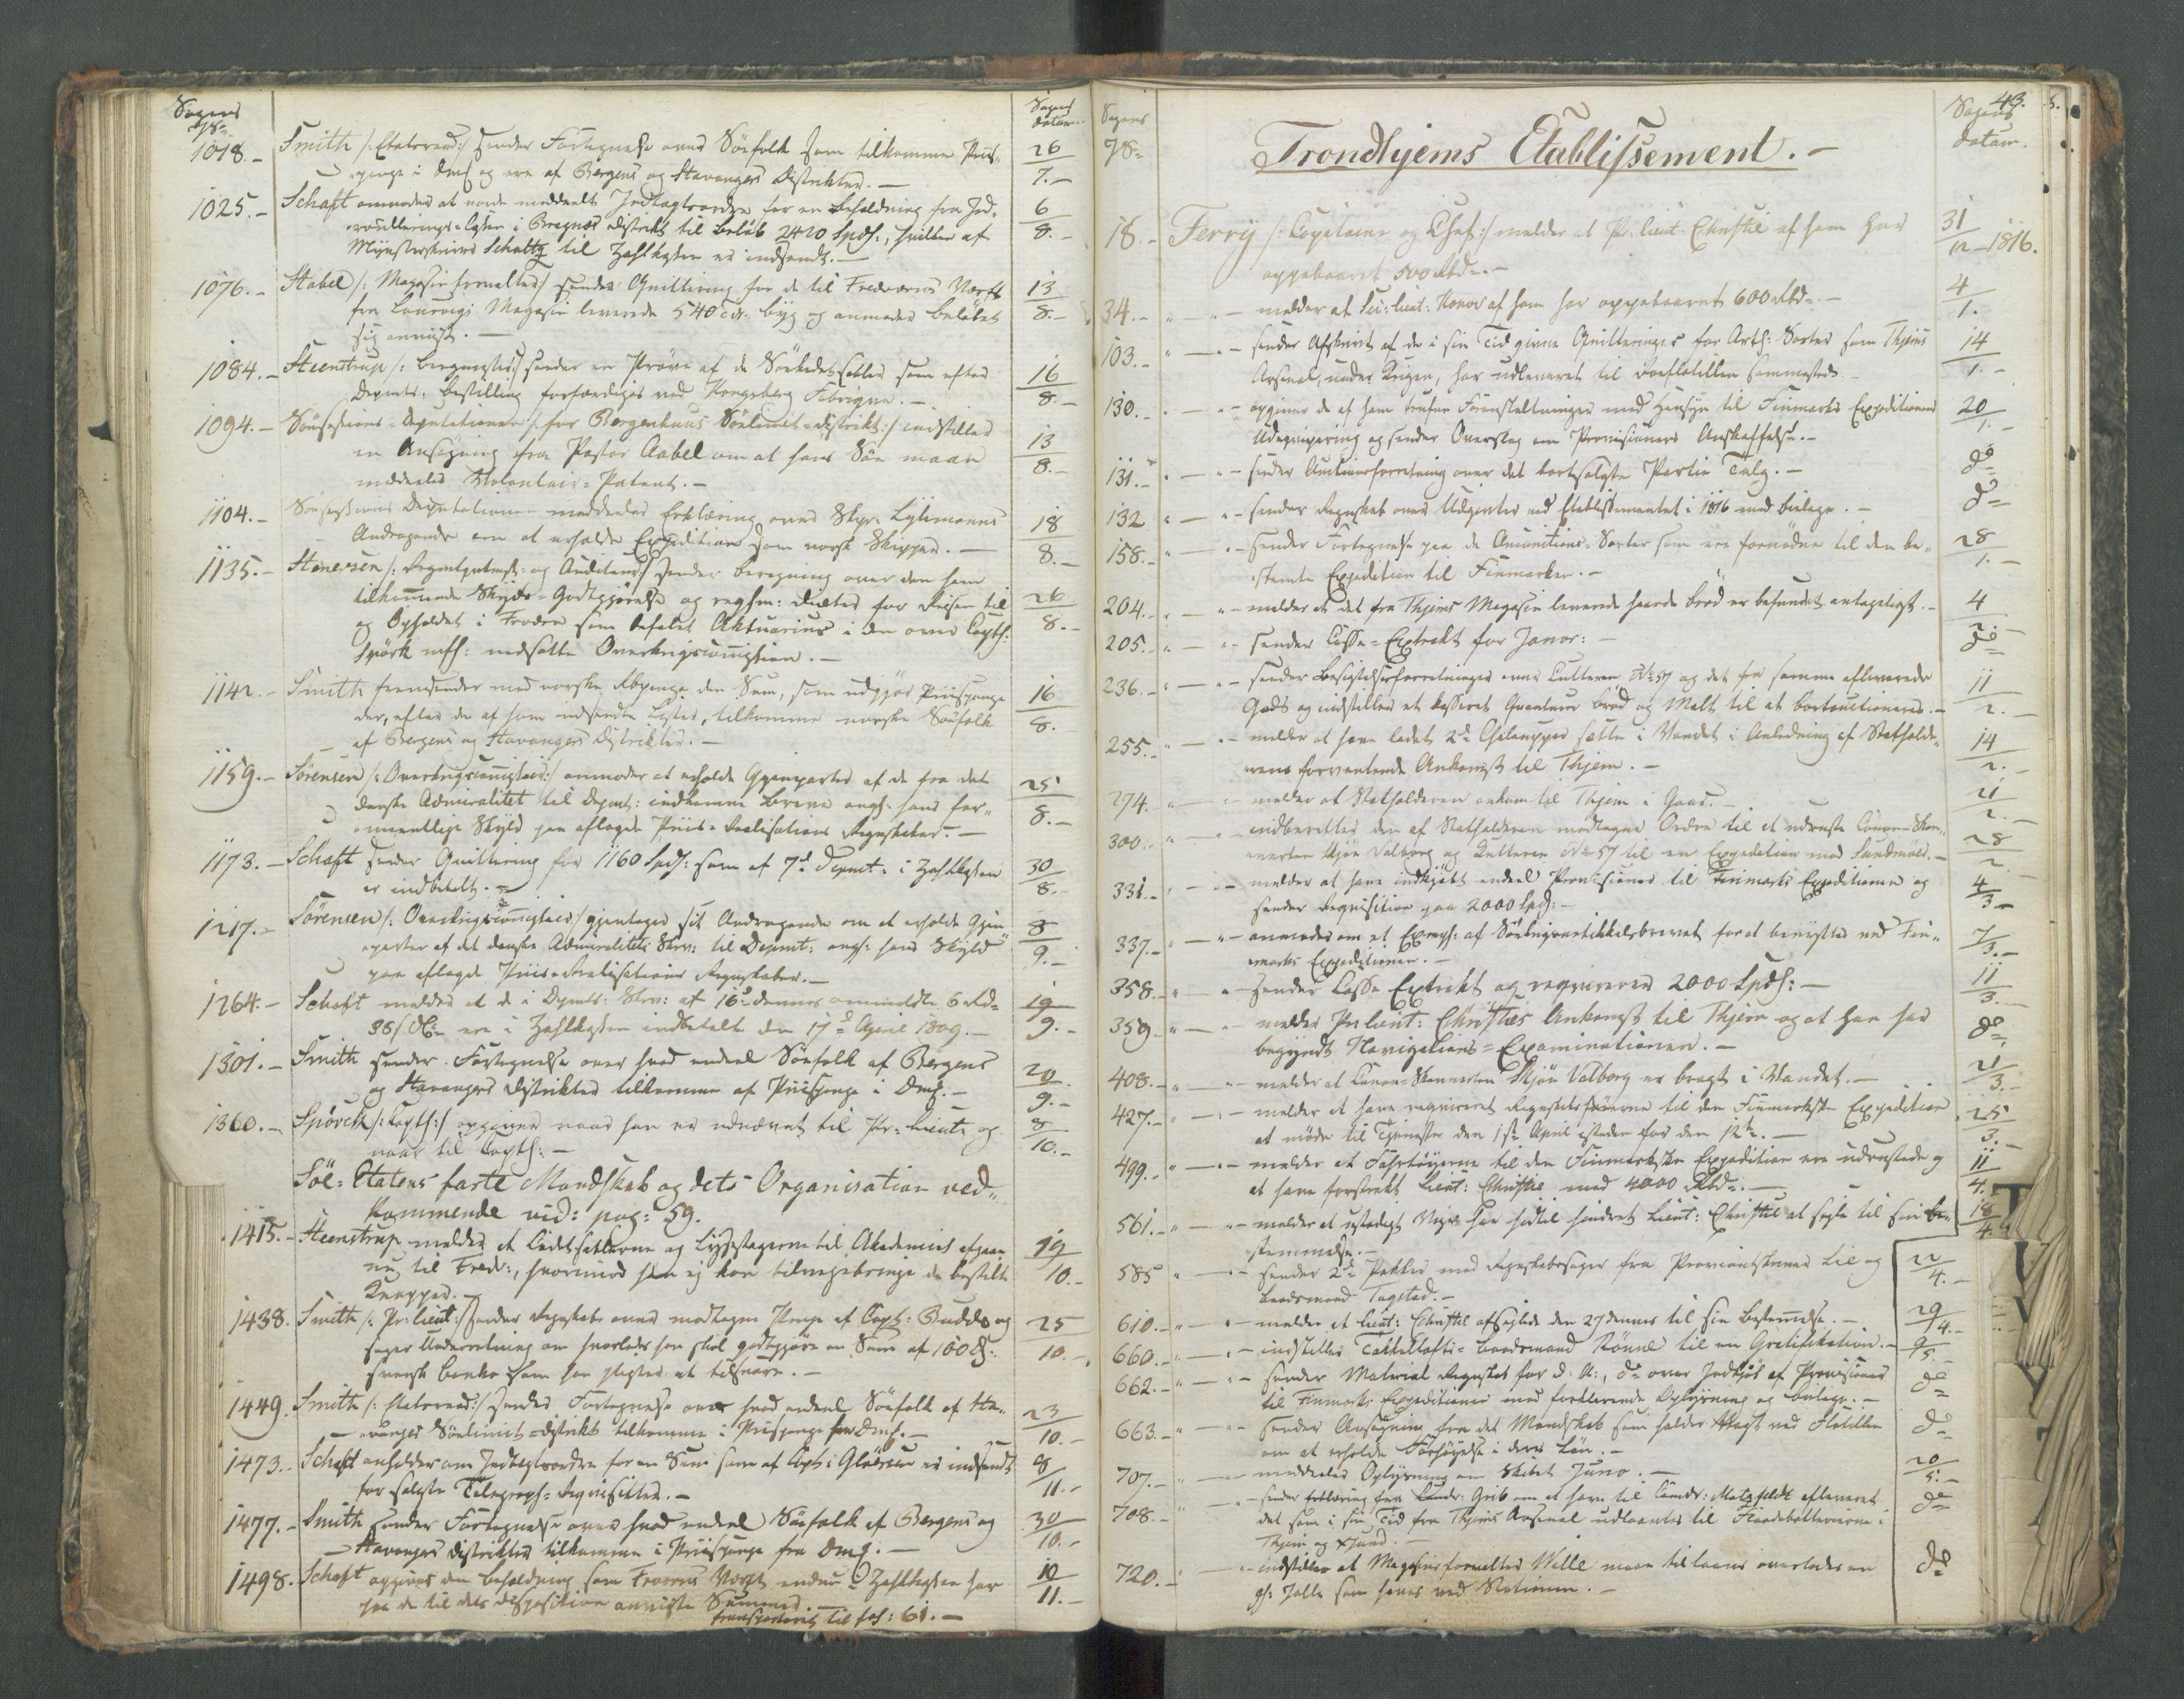 Sagens
No
Sagens
datum
1018. Smith /: Etatsraad :/ sender Fortegnelse over Söefolk som tilkomme Priis-
penge i Dmk og ere af Bergens og Stavangers Distrikter. — 26/7.
1025. Schaft anmodes at vorde meddeelt Indtægtsordre for en Beholdning fra Ind-
roullerings-Cassen i Bragnæs District til Beløb 2420 Spds:, hvilken af
Mynsterskriver Schultz til Zahlkassen er indsendt. — 6/8.
1076. Stabel /: Magasinforvalter :/ sender Quittering for de til Fredværns Værft
fra Laurvigs Magasin leverede 540 Tdr. Byg og anmoder Beløbet
sig anviist. — 13/8.
1084. Steenstrup /: Bergmester :/ sender en Pröve af de Söekadetsabler som efter
Depmts: Bestilling forfærdiges ved Kongsberg Fabriqve. — 16/8.
1094. Sösessions-Deputationen /: for Bergenhuus Sölimit-district :/ indstiller
en Ansögning fra Pastor Aabel om at hans Sön maae
meddeles Volontair-Patent. — 13/8.
1104. Sösessions Deputationen meddeler Erklæring over Skpr. Lykmanns
Andragende om at erholde Expedition som norsk Skipper. — 18/8.
1135. Stenersen /: Regmtqvtmst: og Auditeur :/ sender Beregning over den ham
tilkommende Skyds-Godtgjörelse og Diæter for Reisen til
og Opholdet i Fredr. som befalet Aktuarius i den over Capth:
Spörk nedsatte Overkrigscommission. — 26/8.
1142. Smith fremsender med norske Rbpenge den Sum, som udgjör Priispenge
der, efter de af ham indsendte Lister, tilkomme norske Söefolk
af Bergens og Stavangers Distrikter. — 16/8.
1159. Sörensen /: Overkrigscommissair :/ anmoder at erholde Gjenparter af de fra det
danske Admiralitet til Depmt: indkomne Breve angh. hans for-
meentlige Skyld paa aflagde Priis-Realisations Regnskaber. — 25/8.
1173. Schaft sender Quittering for 1160 Spds: som af 7de Depmt: i Zahlkassen
er indbetalt. — 30/8.
1217. Sörensen /: Overkrigscommissair :/ gjentager sit Andragende om at erholde Gjen-
parter af det danske Admiralitets Skriv: til Depmt: angh: hans Skyld
paa aflagde Priis-Realisations Regnskaber. — 8/9.
1264. Schaft melder at de i Depmts: Skrv: af 16de dennes ommeldte 6 Rd
36 s. ere i Zahlkassen indbetalt den 17de April 1809. — 19/9.
1301. Smith sender Fortegnelse over hvad endeel Söefolk af Bergens
og Stavangers Distrikter tilkomme af Priispenge i Dmk. — 20/9.
1360. Spörck /: Capth: :/ opgiver naar han er udnævnt til Pr: Lieut: og
naar til Capth: — 8/10.
Söe-Etatens faste Mandskab og dets Organisation ved-
kommende vid: pag: 59.
1415. Steenstrup melder at Cadetsablerne og Lysestagerne til Akademiet afgaae
nu til Fredr:, hvorimod han ej kan tilvejebringe de bestilte
Knapper. — 19/10.
1438. Smith /: Pr: Lieut: :/ sender Regnskab over modtagne Penge af Capt: Budde og
söger Underretning om hvorledes han skal godtgjöre en Sum af 100
svensk Banko som han pligter at tilsvare. — 25/10.
1449. Smith /: Etatsraad :/ sender Fortegnelse over hvad endeel Söefolk af Sta-
vangers Sölimits-distrikt tilkomme i Priispenge fra Dmk. — 23/10.
1473. Schaft anholder om Indtægtsordre for en Sum som af Capt: Glöersen er indsendt
for solgte Telegraph-Reqvisiter. — 8/11.
1477. Smith sender Fortegnelse over hvad endeel Söefolk af Bergens og
Stavangers Distrikter tilkomme i Priispenge fra Dmk. — 30/10.
1498. Schaft opgiver den Beholdning som Fredværns Værft endnu i Zahlkassen har
paa de til dets Disposition anviiste Summer. — 10/11.
transporteret til fol: 61. —
43.
Sagens
No
Sagens
datum.
Trondhjems Etablissement. —
18. Ferry /: Capitaine og Chef :/ melder at Pr: Lieut: Christie af ham har
oppebaaret 500 Rbd. — 31/12 1816.
34. melder at Sec: Lieut: af ham har oppebaaret 600 Rbd. — 4/1.
103. sender Afskrivt af de i sin Tid givne Quitteringer for Arth: Sorter som Thjems
Arsenal, under Krigen, har udleveret til Roeflotillen sammesteds. 14/1.
130. opgiver de af ham trufne Foranstaltninger med Hensyn til Finmarks Expeditionens
Udeqviperung og sender Overslag om Provisioners Anskaffelse. — 20/1.
131. sender Auctionsforretning over det bortsolgte Partie Talg. — do
132 sender Regnskab over Udgivter ved Etablissementet i 1816 med Bielage. — do
158. sender Fortegnelse paa de Amunitions-Sorter som ere fornödne til den be-
stemte Expedition til Finmarken. — 28/1.
204. melder at det fra Thjems Magasin leverede haarde Bröd er befundet antageligt. — 4/2.
205. sender Casse-Extrakt for Janvr: — do
236. sender Besigtelsesforretninger over Cutteren No 57 og det fra samme afleverede
Gods og indstiller et kasseret Quantum Bröd og Malt til at bortauctioneres. — 11/2.
255. melder at have ladet 2de Chalupper sætte i Vandet i Anledning af Statholde-
rens forventende Ankomst til Thjem. — 14/2.
274. melder at Statholderen ankom til Thjem i Gaar. — 21/2.
300. indberetter den af Statholderen modtagne Ordre til at udruste Canon-Skon-
nerten Skjön Valborg og Kutteren No 57 til en Expedition mod Sundmöer. — 28/2
331. melder at have indkjöbt endeel Provisioner til Finmarks Expeditionen og
sender Reqvisition paa 2000 Spds: — 4/3
337. anmoder om et Expl: af Söekrigsartikkelsbrevet for at benyttes ved Fin-
marks Expeditionen. — 7/3.
358. sender Casse Extrakt og reqvirerer 2000 Spds: — 11/3.
359. melder Pr Lieut: Christies Ankomst til Thjem og at han har
begyndt Navigations-Examinationen. — do
408. melder at Canon-Skonnerten Skjön Valborg er bragt i Vandet. — 21/3.
427. melder at have reqvireret til den Finmarkske Expedition
at möde til Tjeneste den 1ste April istedenfor den 12te. — 25/3.
499. melder at Fartöyerne til den Finmarkske Expedition ere udrustede og
at have forstrakt Lieut: Christie med 4000 Rbd. — 11/4.
561. melder at ustadigt Veir har hidtil hindret Lieut: Christie at seyle til sin Be-
stemmelse. — 18/4.
585 sender 2de Pakker med Regnskabssager fra Proviantskriver Lie og
Baadsmand Tagstad. — 22/4.
610. melder at Lieut: Christie afseylede den 27 dennes til sin Bestemmelse. — 29/4.
660. indstiller Takkellofts-Baadsmand Rönne til en Gratifikation. — 9/5.
662. sender Material Regnskab for d: A:, do over Indkjöb af Provisioner
til Finmarks Expeditionen med forklarende Oplysning og Bielage. — do
663. sender Ansögning fra det Mandskab som holder Vagt ved Flotillen
om at erholde Forhöyelse i deres Lön. — do
707. meddeler Oplysning om Skibet Juno. — 20/5.
708. sender Erklæring fra Comdr: Grib om at have til Comdr: Motzfeldt afleveret
det som i sin Tid fra Thjems Arsenal udlaantes til Flaadebatterierne i
Thjem og Xsund. — do
720. indstiller at Magasinforvalter Wille maae til laans overlades en
gl: Jolle som haves ved Stationen. — do